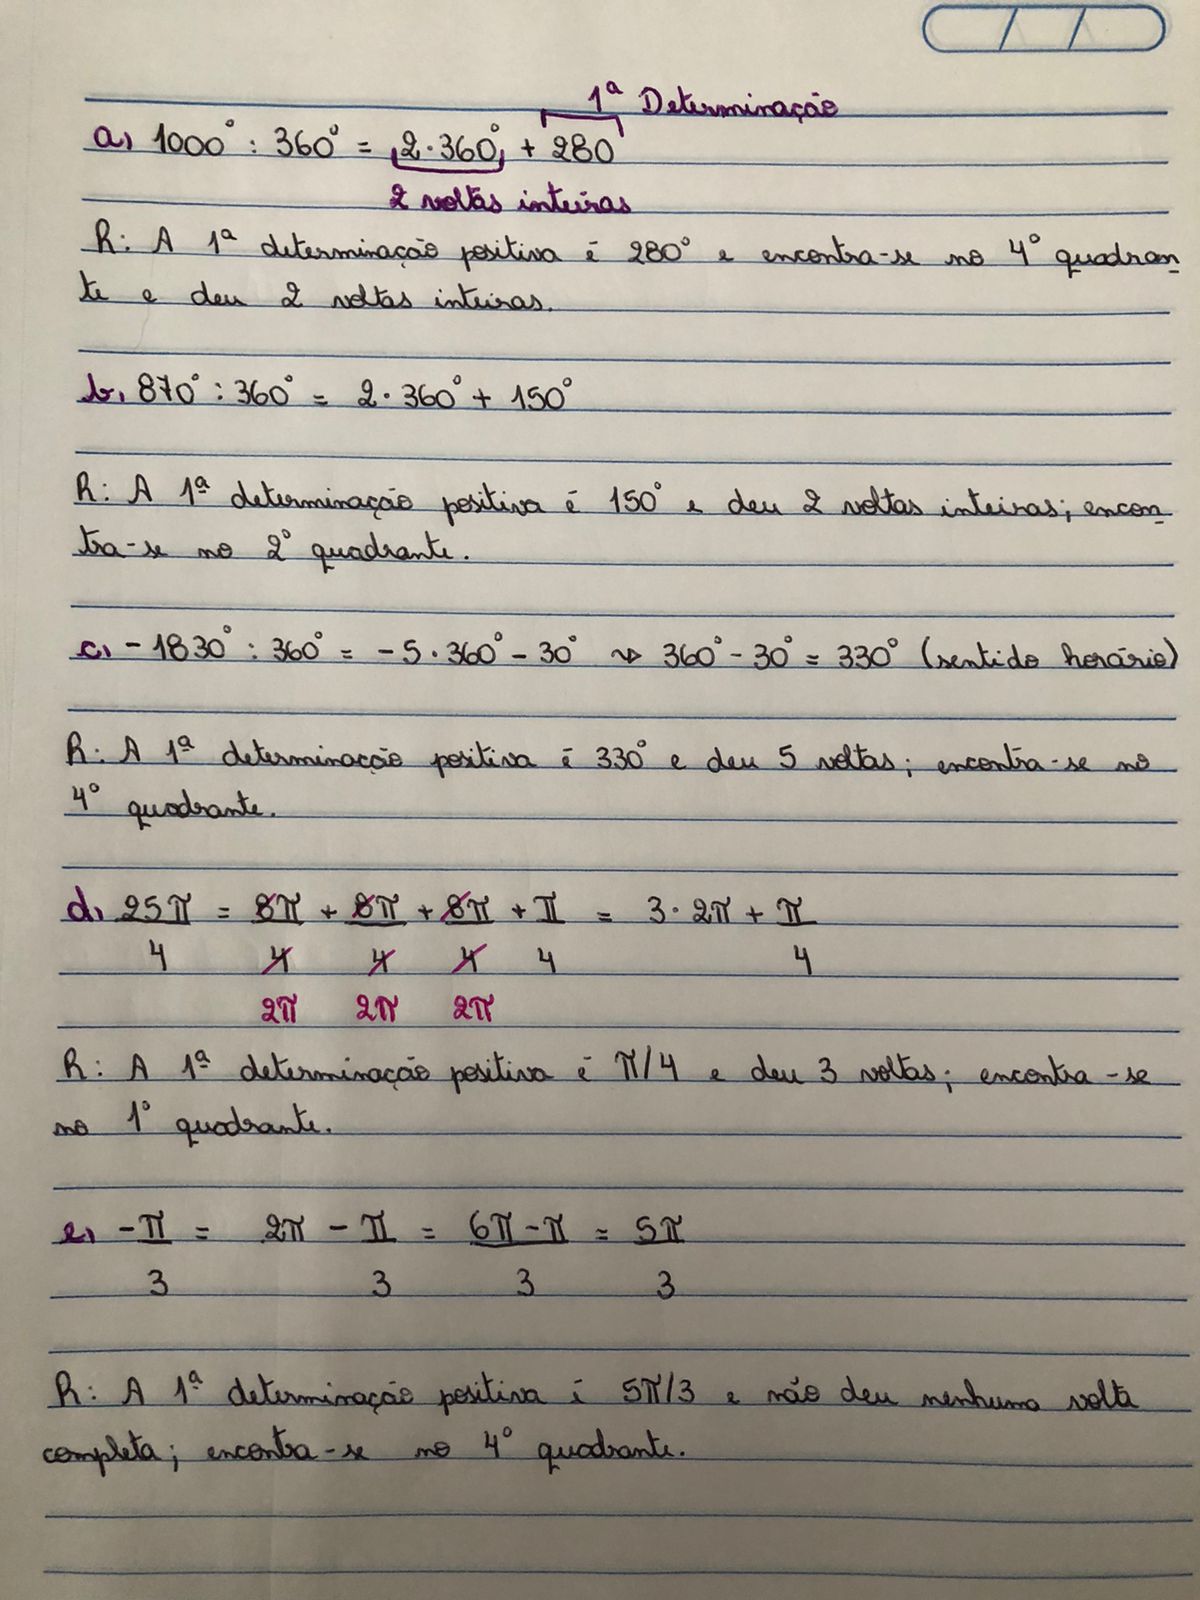 1ª Determinação
a, 1000° : 360° = 2·360° + 280
2 voltas inteiras
R: A 1ª determinação positiva é 280° e encontra-se no 4° quadran-
te e deu 2 voltas inteiras.
b, 870° : 360° = 2·360° + 150°
R: A 1ª determinação positiva é 150° e deu 2 voltas inteiras; encon-
tra-se no 2° quadrante.
c, -1830° : 360° = -5·360° - 30° ↝ 360° - 30° = 330° (sentido horário)
R: A 1ª determinação positiva é 330° e deu 5 voltas; encontra-se no
4° quadrante.
d, 25π = 8π + 8π + 8π + π = 3·2π + π
4 4 4 4 4 4
2π 2π 2π
R: A 1ª determinação positiva é π/4 e deu 3 voltas; encontra-se
no 1° quadrante.
e, -π = 2π - π = 6π - π = 5π
3 3 3 3
R: A 1ª determinação positiva é 5π/3 e não deu nenhuma volta
completa; encontra-se no 4° quadrante.